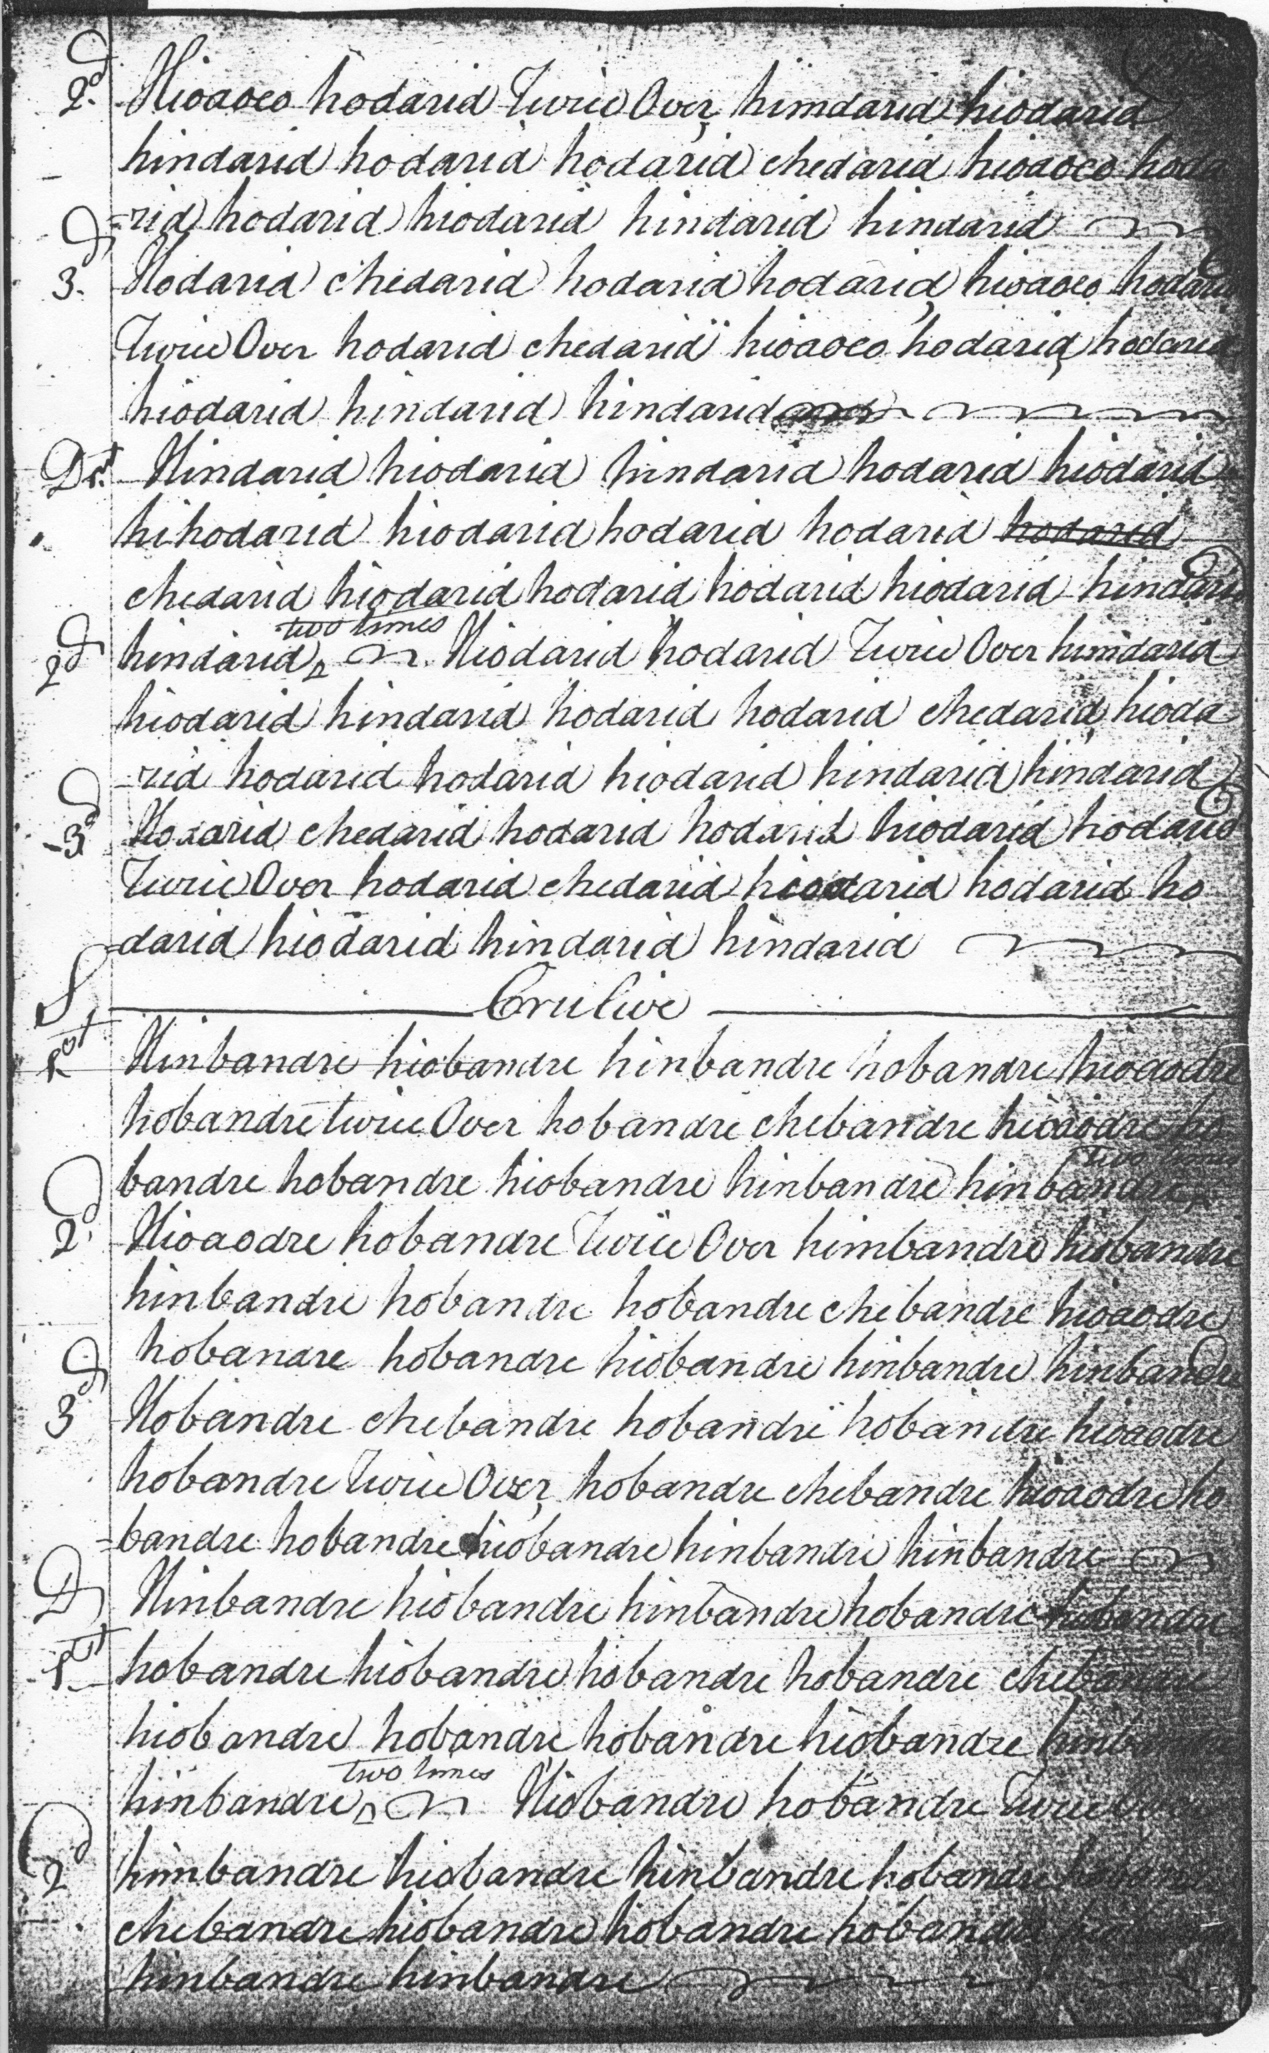 2d Hioaoeo hodarid Twice Over himdarid hiodarid
hindarid hodarid hodarid chedarid hioaoeo hoda
=rid hodarid hiodarid hindarid hindarid
3d Hodarid chedarid hodarid hodarid hioaoeo hodarid
Twice Over hodarid chedarid hioaoeo hodarid hodarid
hiodarid hindarid hindarid
D 1st Hindarid hiodarid hindarid hodarid hiodarid
hihodarid hiodarid hodarid hodarid hodarid
chedarid hiodarid hodarid hodarid hiodarid hindarid
two times
2d hindarid Hiodarid hodarid Twice Over himdarid
hiodarid hindarid hodarid hodarid chedarid hioda
-rid hodarid hodarid hiodarid hindarid hindarid
3d Hodarid chedarid hodarid hodarid hiodarid hodarid
Twice Over hodarid chedarid hiodarid hodarid ho
=darid hiodarid hindarid hindarid
S Crulive
1st Hinbandre hiobandre hinbandre hobandre hioaodre
hobandre twice Over hobandre chebandre hioaodre ho
two times
bandre hobandre hiobandre hinbandre hinbandre
2d Hioaodre hobandre Twice Over himbandre hiobandre
hinbandre hobandre hobandre chebandre hioaodre
hobandre hobandre hiobandre hinbandre hinbandre
3d Hobandre chebandre hobandre hobandre hioaodre
hobandre Twice Over hobandre chebandre hioaodre ho
=bandre hobandre hiobandre hinbandre hinbandre
D Hinbandre hiobandre hinbandre hobandre hiobandre
1st hobandre hiobandre hobandre hobandre chebandre
hiobandre hobandre hobandre hiobandre hinbandre
two times
hinbandre Hiobandre hobandre Twice Over
2d himbandre hiobandre hinbandre hobandre hobandre
chebandre hiobandre hobandre hobandre
hinbandre hinbandre